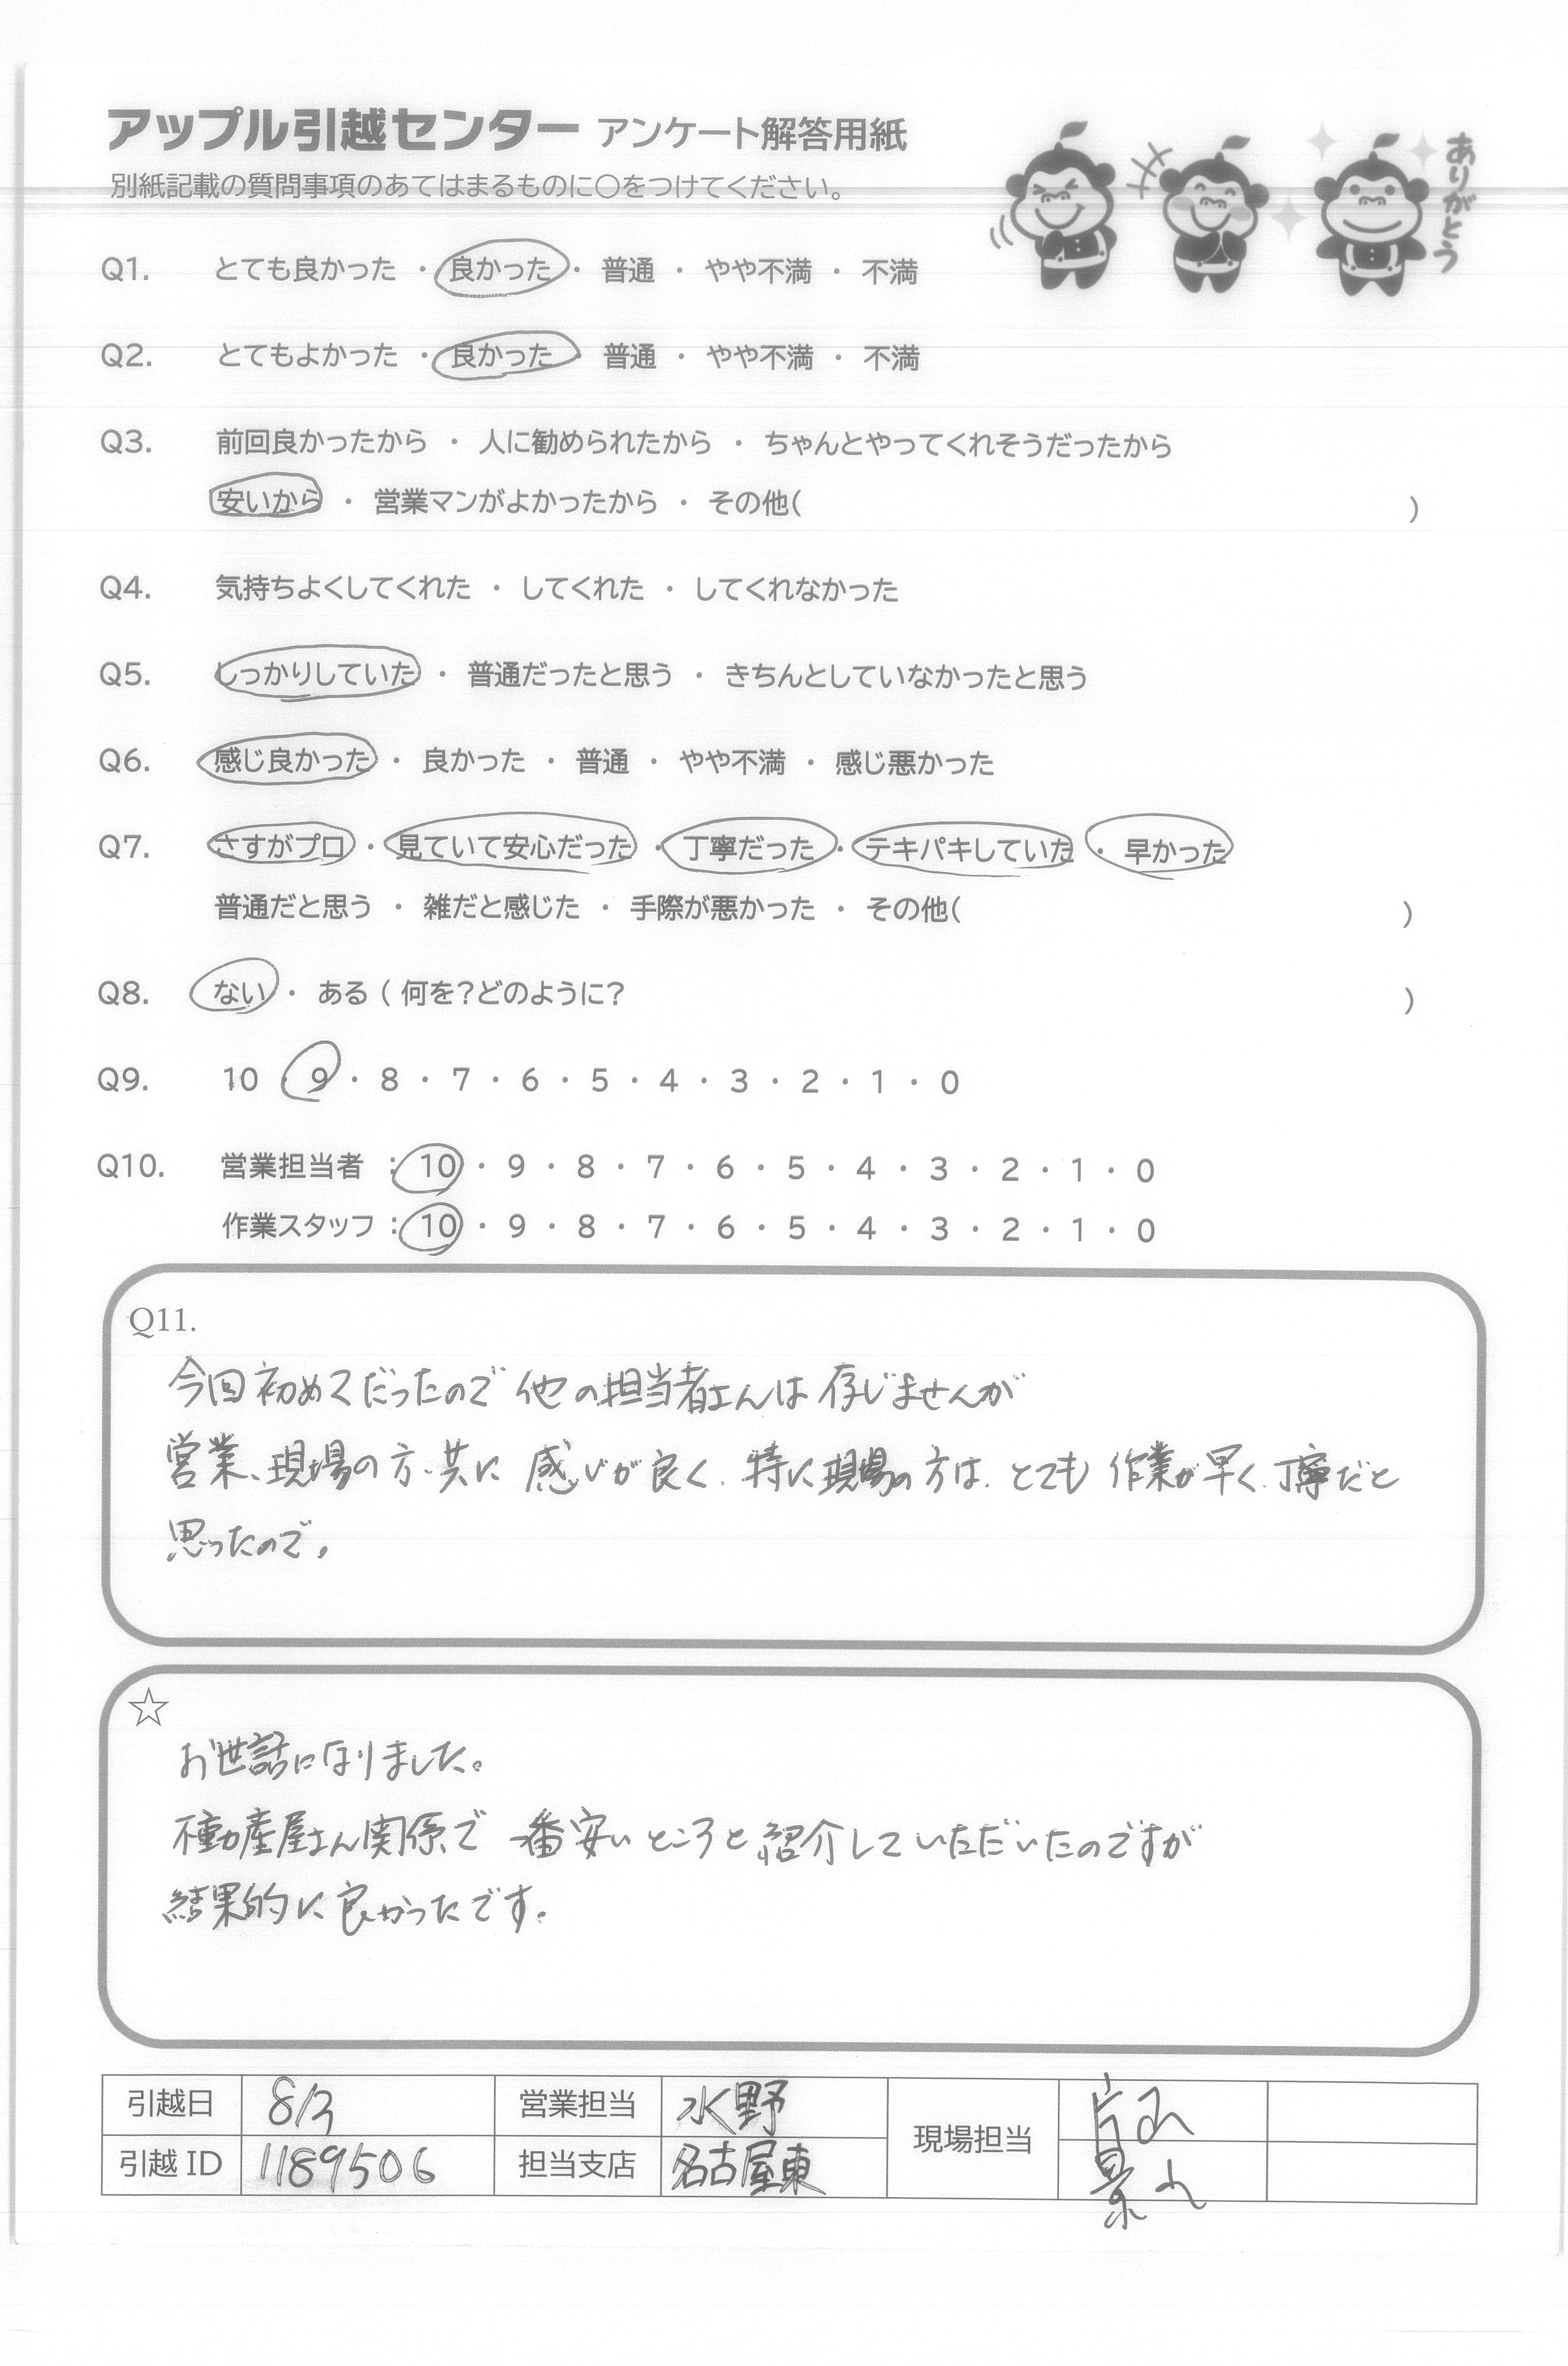 アップル引越センター アンケート解答用紙
別紙記載の質問事項のあてはまるものに○をつけてください。
ありがとう
Q1. とても良かった ・ 良かった ・ 普通 ・ やや不満 ・ 不満
Q2. とてもよかった ・ 良かった ・ 普通 ・ やや不満 ・ 不満
Q3. 前回良かったから ・ 人に勧められたから ・ ちゃんとやってくれそうだったから
安いから ・ 営業マンがよかったから ・ その他( )
Q4. 気持ちよくしてくれた ・ してくれた ・ してくれなかった
Q5. しっかりしていた ・ 普通だったと思う ・ きちんとしていなかったと思う
Q6. 感じ良かった ・ 良かった ・ 普通 ・ やや不満 ・ 感じ悪かった
Q7. さすがプロ ・ 見ていて安心だった ・ 丁寧だった ・ テキパキしていた ・ 早かった
普通だと思う ・ 雑だと感じた ・ 手際が悪かった ・ その他( )
Q8. ない ・ ある ( 何を?どのように? )
Q9. 10 ・ 9 ・ 8 ・ 7 ・ 6 ・ 5 ・ 4 ・ 3 ・ 2 ・ 1 ・ 0
Q10. 営業担当者 : 10 ・ 9 ・ 8 ・ 7 ・ 6 ・ 5 ・ 4 ・ 3 ・ 2 ・ 1 ・ 0
作業スタッフ : 10 ・ 9 ・ 8 ・ 7 ・ 6 ・ 5 ・ 4 ・ 3 ・ 2 ・ 1 ・ 0
Q11.
今回初めてだったので 他の担当者さんは存じませんが
営業、現場の方、共に 感じが良く、特に現場の方は、とても 作業が早く、丁寧だと
思ったので。
☆
お世話になりました。
不動産屋さん関係で 一番安いところと紹介していただいたのですが
結果的に良かったです。
引越日 8/3 営業担当 水野 現場担当
引越 ID 1189506 担当支店 名古屋東